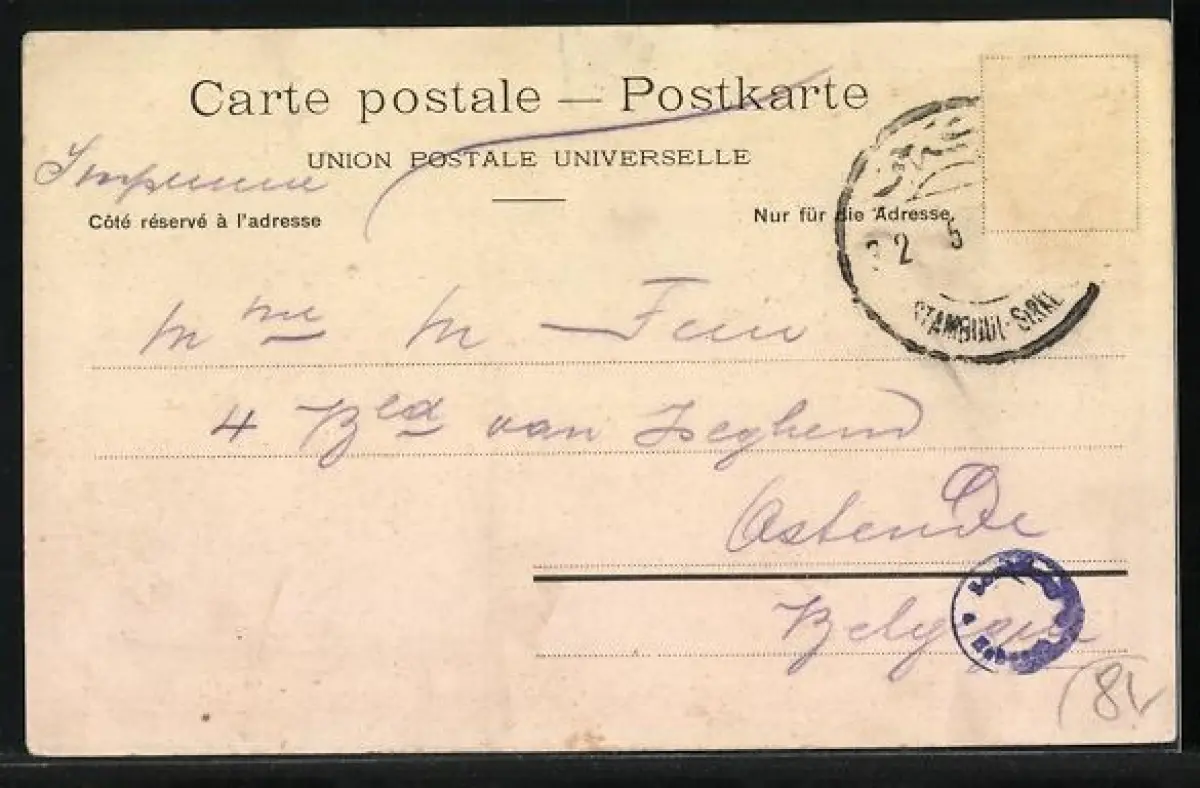 Carte postale — Postkarte
UNION POSTALE UNIVERSELLE
Imprimé
Côté réservé à l'adresse
Nur für die Adresse.
2 5
STAMBOUL-SIRKE
Mme M
4 Bld van Iseghem
Ostende
Belgique
(8V